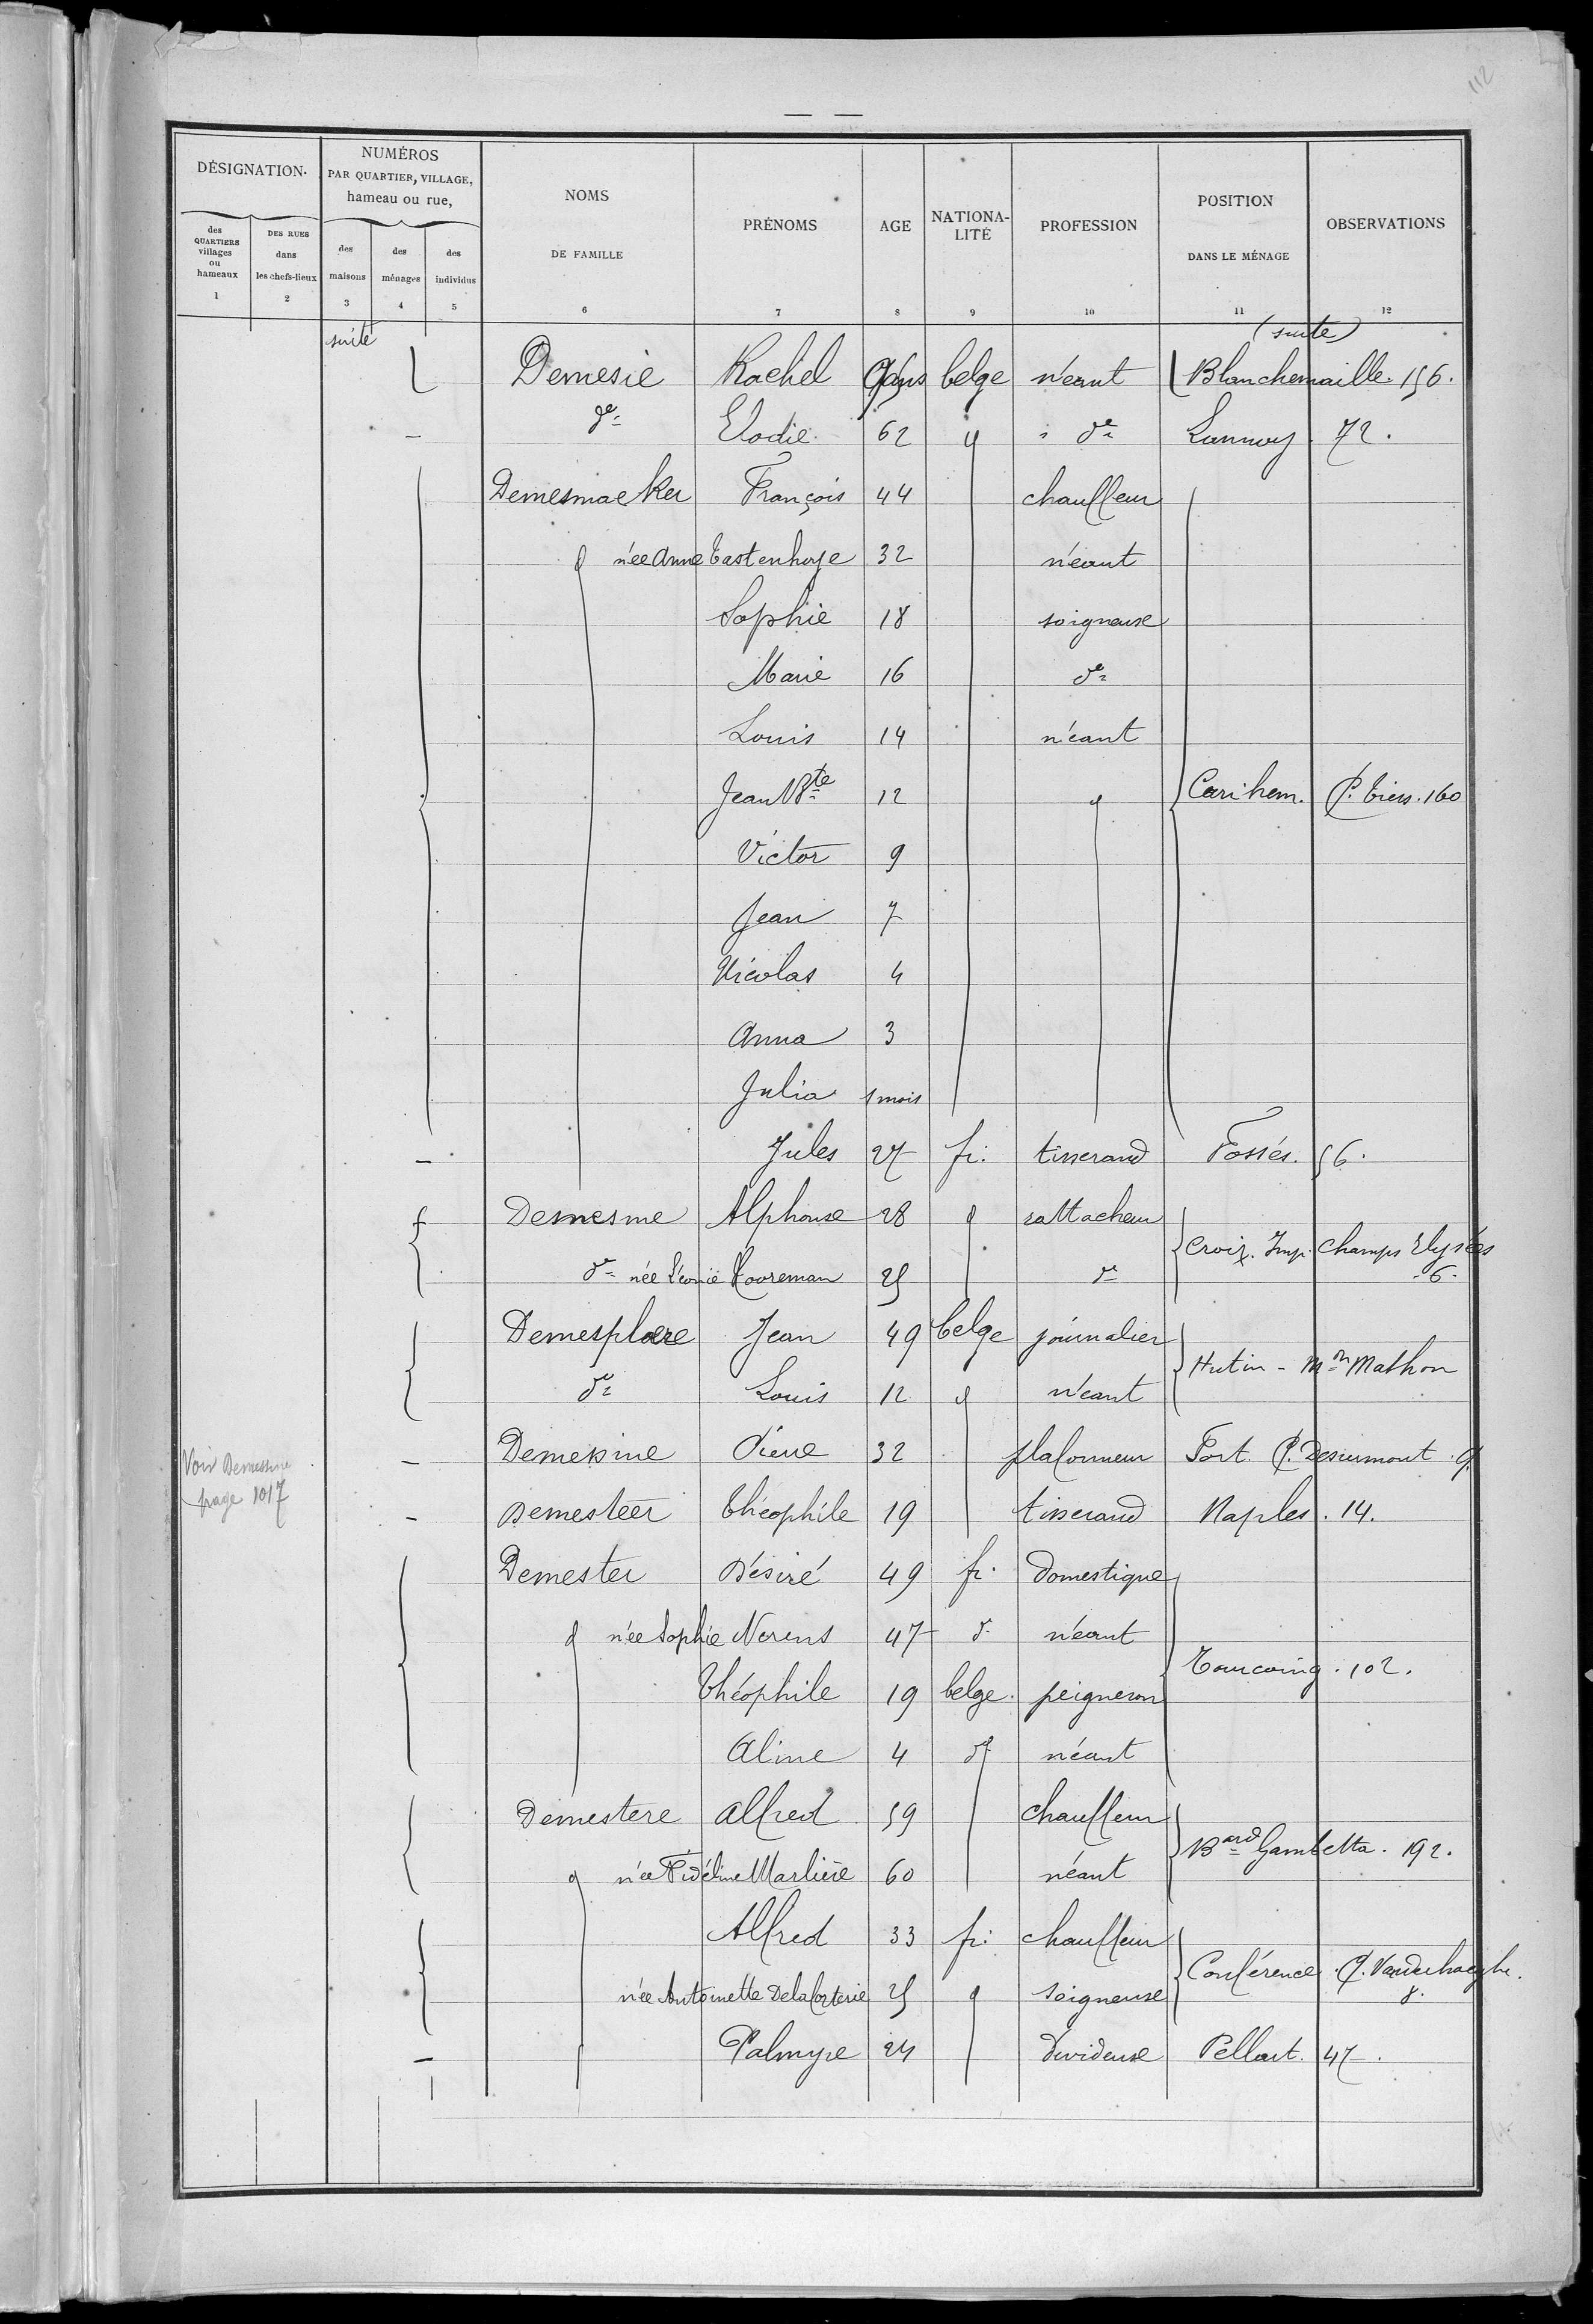 112
— —
DÉSIGNATION.
NUMÉROS
PAR QUARTIER, VILLAGE,
hameau ou rue,
NOMS
DE FAMILLE
PRÉNOMS
AGE
NATIONA-
LITÉ
PROFESSION
POSITION
DANS LE MÉNAGE
OBSERVATIONS
des
QUARTIERS
villages
ou
hameaux
DES RUES
dans
les chefs-lieux
des
maisons
des
ménages
des
individus
1 2 3 4 5 6 7 8 9 10 11 12
suite (suite)
Demesie Rachel belge néant Blanchemaille 156.
de Elodie 62 " de Lannoy 72.
Demesmaeker François 44 chauffeur
" née Anne Tastenhoye 32 néant
Sophie 18 soigneuse
Marie 16 de
Louis 14 néant
Jean Bte 12 " Carihem. P. Tiers. 160
Victor 9
Jean 7
Nicolas 4
Anna 3
Julia 1 mois
Jules 27 fr. tisserand Fossés. 56.
Demesme Alphonse 28 " rattacheur
Croix. Imp. Champs Elysées
d° née Léonie Kooreman 25 d° 6.
Demesplaere Jean 49 belge journalier
Hutin - Mon Mathon
de Louis 12 " néant
Demesine Pierre 32 plafonneur Fort. P. Desurmont. 9
Voir Demessine
page 1017
Demesteer Théophile 19 tisserand Naples. 14.
Demester Désiré 49 fr. domestique
" née Sophie Nerens 47 d° néant
Tourcoing. 102.
Théophile 19 belge. peigneron
Aline 4 d° néant
Demestere Alfred 59 chauffeur
Bard Gambetta. 192.
" née Fidéline Marlière 60 néant
Alfred 33 fr. chauffeur
Conférence. P. Vanderhaeghe.
8.
née Antoinette Delaforterie 25 " soigneuse
Palmyre 24 dévideuse Pellart. 47.